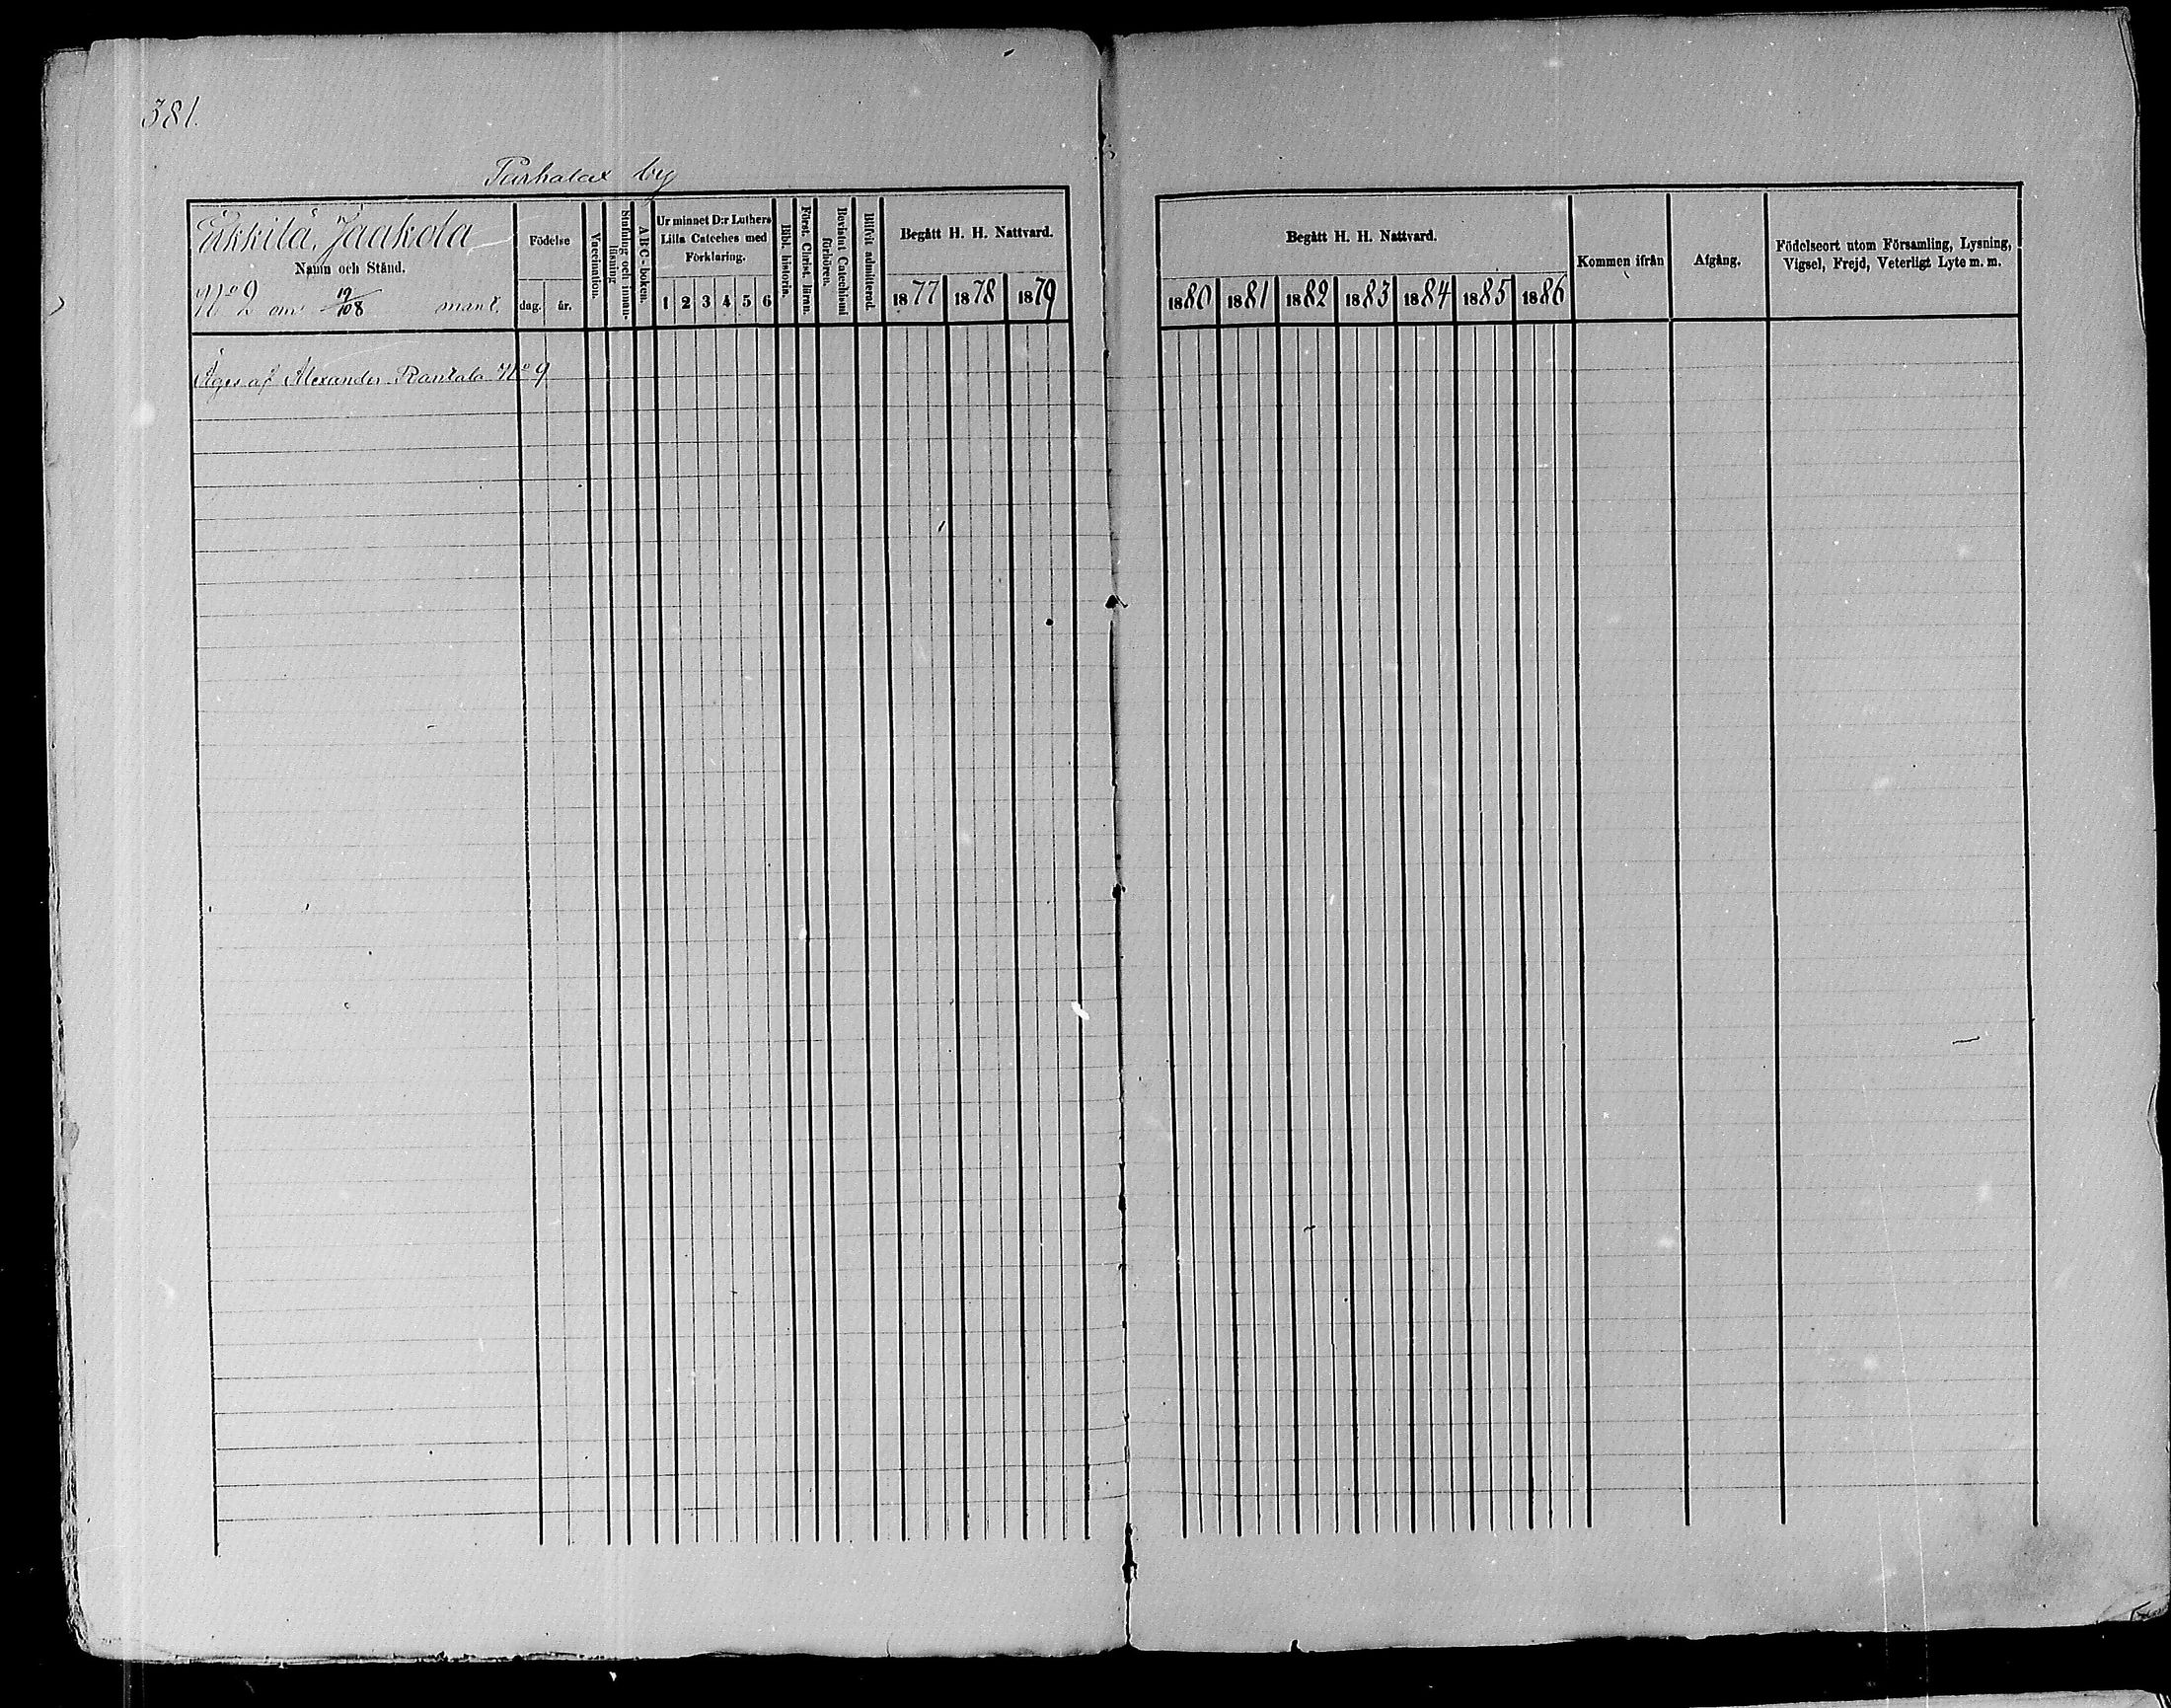 381.
Parhalax by
Jaakola
Namn och Stånd.
No 9 om 19/108 mant.
Födelse
dag. år.
Vaccination.
Stafning och innanläsning
A B C - boken.
Ur minnet D:r Luthers
Lilla Cateches med
Förklaring.
1 2 3 4 5 6
Bibl. historia.
Först. Christ. läran.
Bevistat Catechismi
förhören.
Blifvit admitterad.
Begått H. H. Nattvard.
1877 1878 1879
Äges af Alexander Rantala No 9
Begått H. H. Nattvard.
1880 1881 1882 1883 1884 1885 1886
Kommen ifrån
Afgång.
Födelseort utom Församling, Lysning,
Vigsel, Frejd, Veterligt Lyte m. m.